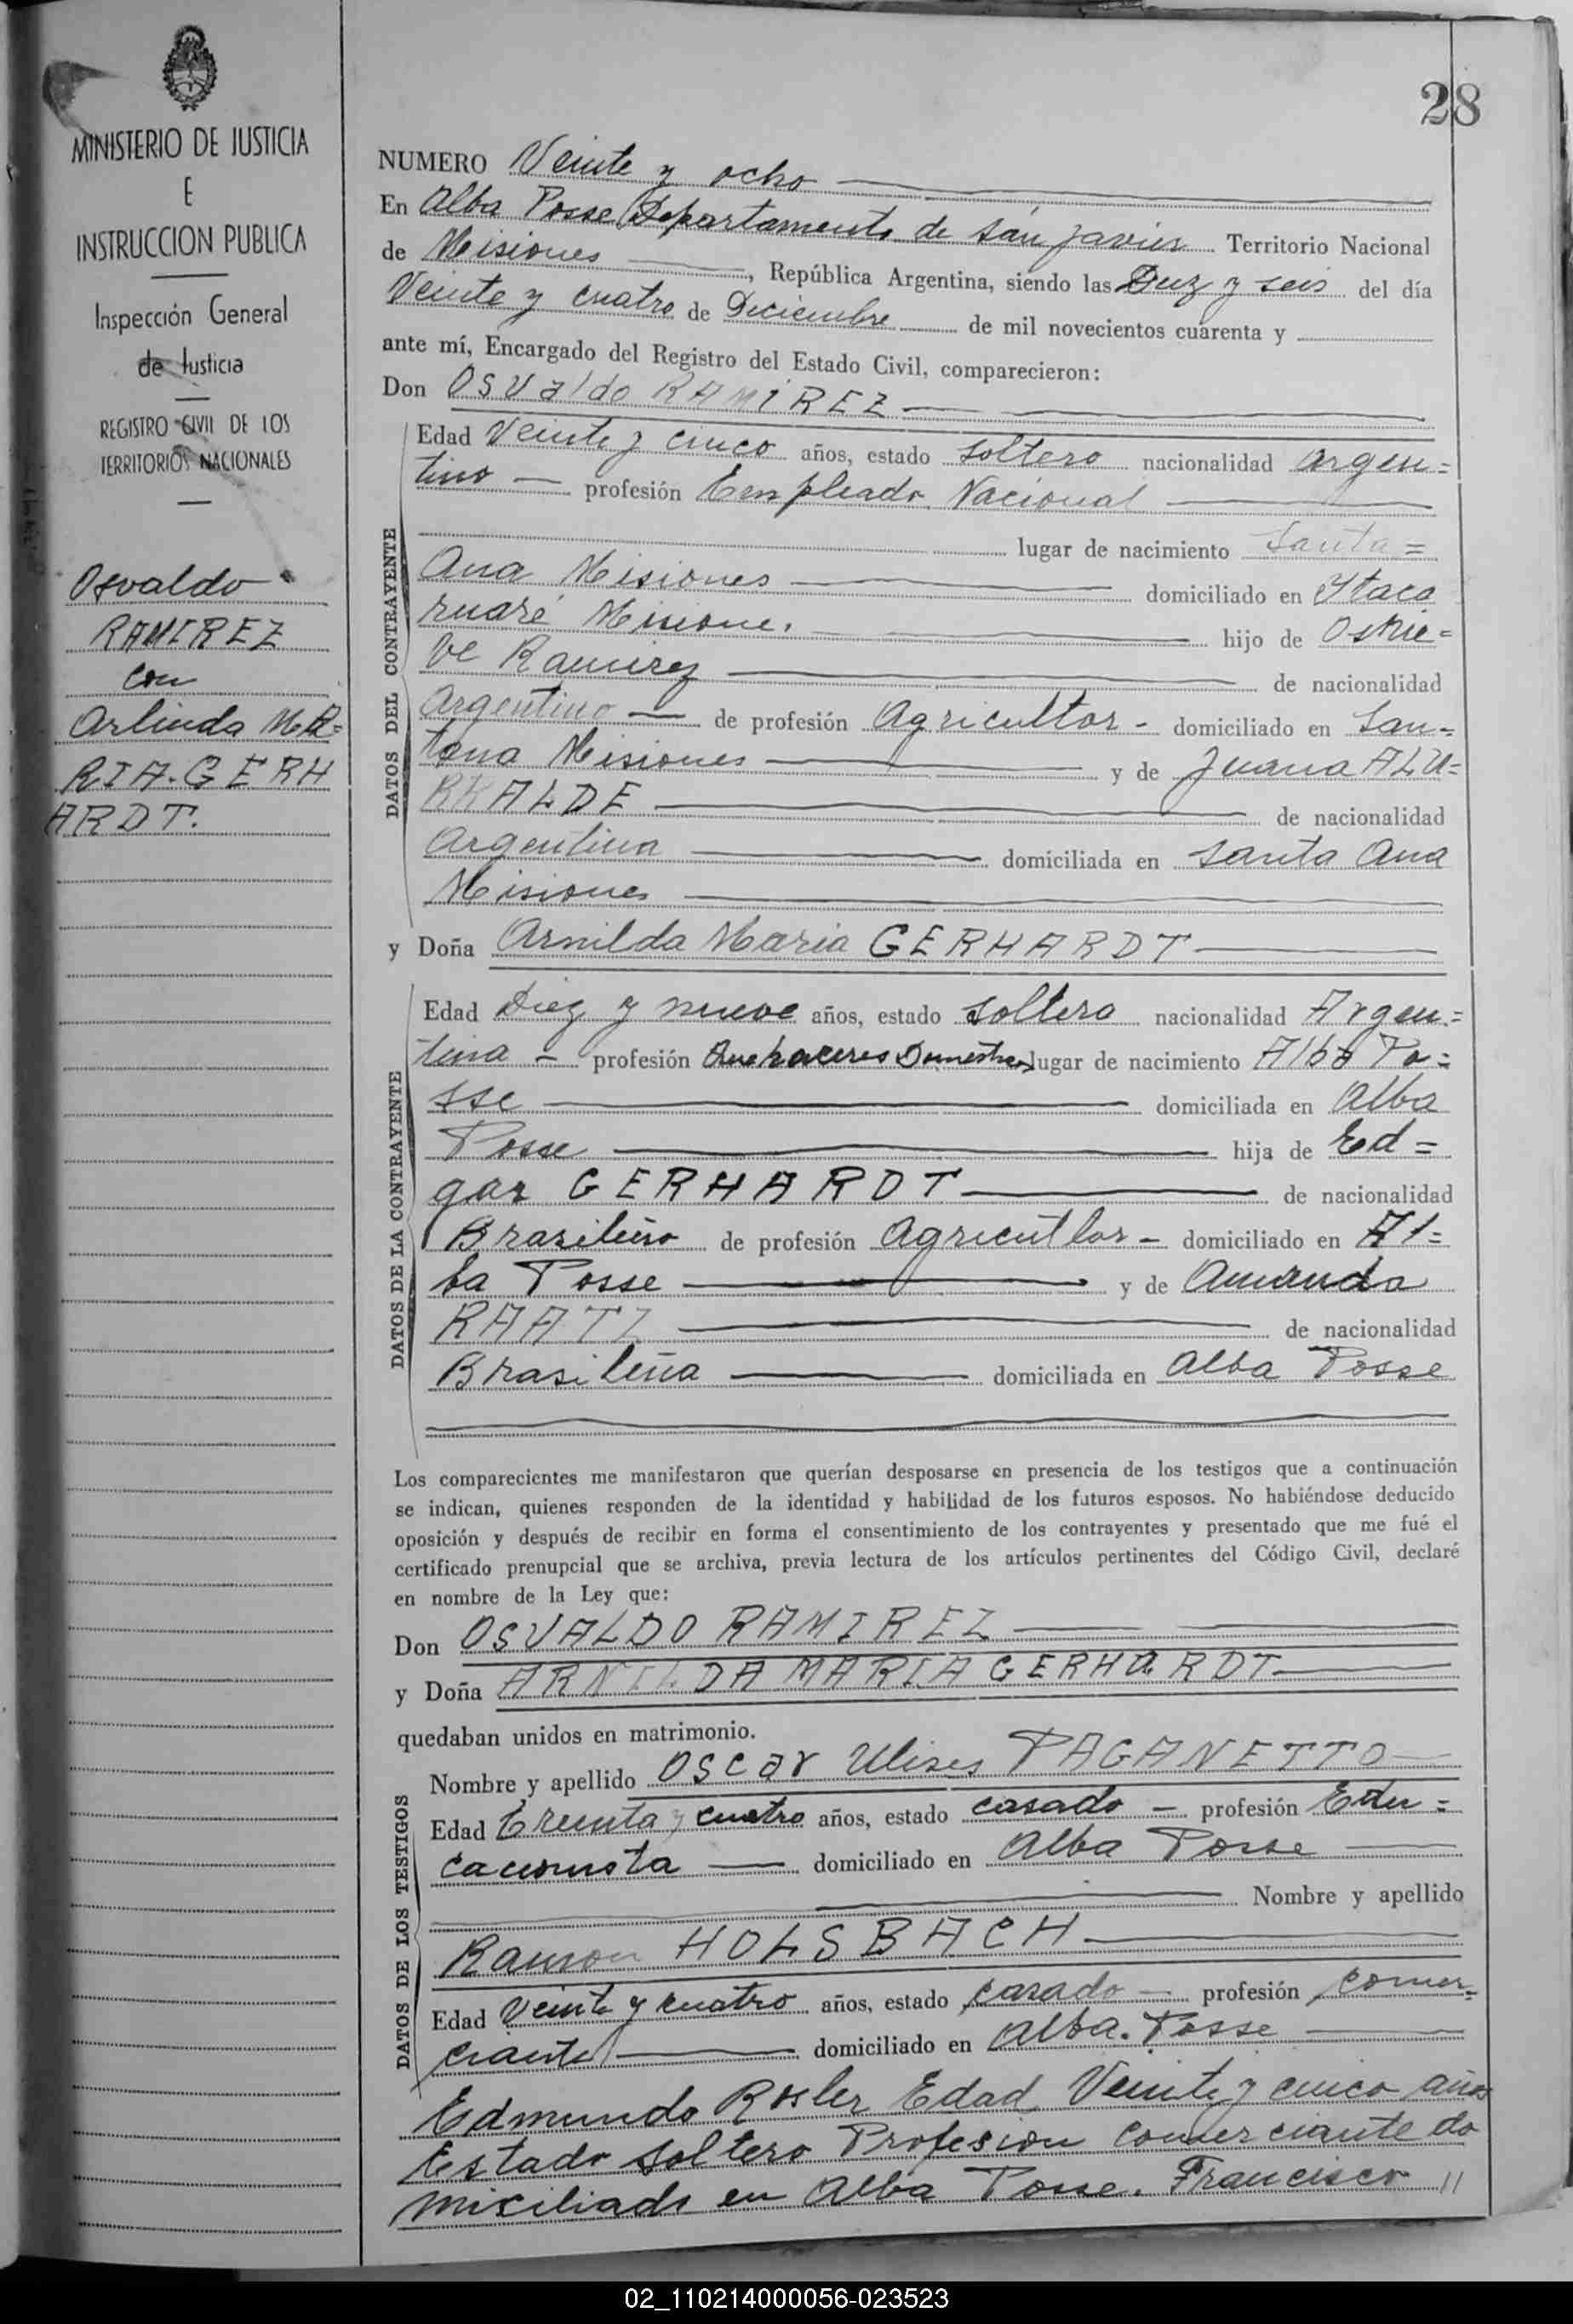 28
MINISTERIO DE JUSTICIA
E
INSTRUCCION PUBLICA
Inspección General
de Justicia
REGISTRO CIVIL DE LOS
TERRITORIOS NACIONALES
Osvaldo
RAMIREZ
con
Arlinda MA=
RIA.GERH
ARDT.
NUMERO Veinte y ocho
En Alba Posse Departamento de San Javier Territorio Nacional
de Misiones, República Argentina, siendo las Diez y seis del día
Veinte y cuatro de Diciembre de mil novecientos cuarenta y
ante mí, Encargado del Registro del Estado Civil, comparecieron:
Don Osvaldo RAMIREZ
DATOS DEL CONTRAYENTE
Edad Veinte y cinco años, estado soltero nacionalidad argen=
tino profesión Empleado Nacional
lugar de nacimiento Santa=
Ana Misiones domiciliado en Itaca
ruaré Misiones hijo de
ve Ramirez de nacionalidad
Argentino de profesión Agricultor - domiciliado en San=
tana Misiones y de Juana ALU=
RRALDE de nacionalidad
Argentina domiciliada en Santa Ana
Misiones
y Doña Arnilda Maria GERHARDT
DATOS DE LA CONTRAYENTE
Edad Diez y nueve años, estado soltera nacionalidad Argen=
tina - profesión Quehaceres Domesticos lugar de nacimiento Alba Po=
sse domiciliada en Alba
Posse hija de Ed=
gar GERHARDT de nacionalidad
Brasileño de profesión Agricultor - domiciliado en Al=
ba Posse y de Amanda
RAATZ de nacionalidad
Brasileña domiciliada en Alba Posse
Los comparecientes me manifestaron que querían desposarse en presencia de los testigos que a continuación
se indican, quienes responden de la identidad y habilidad de los futuros esposos. No habiéndose deducido
oposición y después de recibir en forma el consentimiento de los contrayentes y presentado que me fué el
certificado prenupcial que se archiva, previa lectura de los artículos pertinentes del Código Civil, declaré
en nombre de la Ley que:
Don OSVALDO RAMIREZ
y Doña ARNILDA MARIA GERHARDT
quedaban unidos en matrimonio.
DATOS DE LOS TESTIGOS
Nombre y apellido Oscar Ulises PAGANETTO
Edad Treinta y cuatro años, estado casado - profesión Edu=
cacionista domiciliado en Alba Posse
Nombre y apellido
Ramon HOLSBACH
Edad Veinte y cuatro años, estado casado - profesión comer=
ciante domiciliado en Alba. Posse
Edmundo Rosler Edad Veinte y cinco años
Estado soltero Profesion comerciante do
miciliado en Alba Posse. Francisco //
02_110214000056-023523